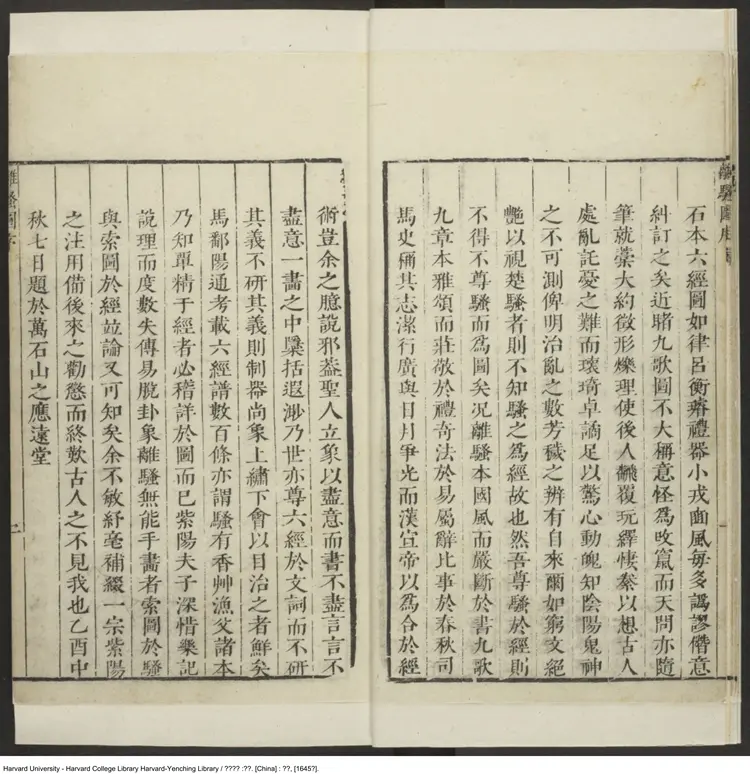 離騷圖序
石本六經圖如律呂衡𤯝禮器小戎豳風每多譌謬僭意
糾訂之矣近睹九歌圖不大稱意怪爲改竄而天問亦隨
筆就藁大約徵形爍理使後人飜覆玩繹悽秦以想古人
處亂託憂之難而瓌琦卓譎足以驚心動魄知陰陽鬼神
之不可測俾明治亂之數芳穢之辨有自來爾如窮文絕
艷以視楚騷者則不知騷之爲經故也然吾尊騷於經則
不得不尊騷而爲圖矣况離騷本國風而嚴斷於書九歌
九章本雅頌而莊敬於禮奇法於易屬辭比事於春秋司
馬史稱其志潔行廣與日月爭光而漢宣帝以爲合於經
術豈余之臆說邪蓋聖人立象以盡意而書不盡言言不
盡意一畵之中檃括遐渺乃世亦尊六經於文詞而不研
其義不研其義則制器尚象上繡下會以目治之者鮮矣
馬鄱陽通考載六經譜數百條亦謂騷有香艸漁父諸本
乃知單精于經者必稽詳於圖而已紫陽夫子深惜樂記
說理而度數失傳易脫卦象離騷無能手畵者索圖於騷
與索圖於經竝論又可知矣余不敏紓毫補綴一宗紫陽
之注用備後來之勸懲而終歎古人之不見我也乙酉中
秋七日題於萬石山之應遠堂
離騷圖序
二
Harvard University - Harvard College Library Harvard-Yenching Library / ???? :??. [China] : ??, [1645?].